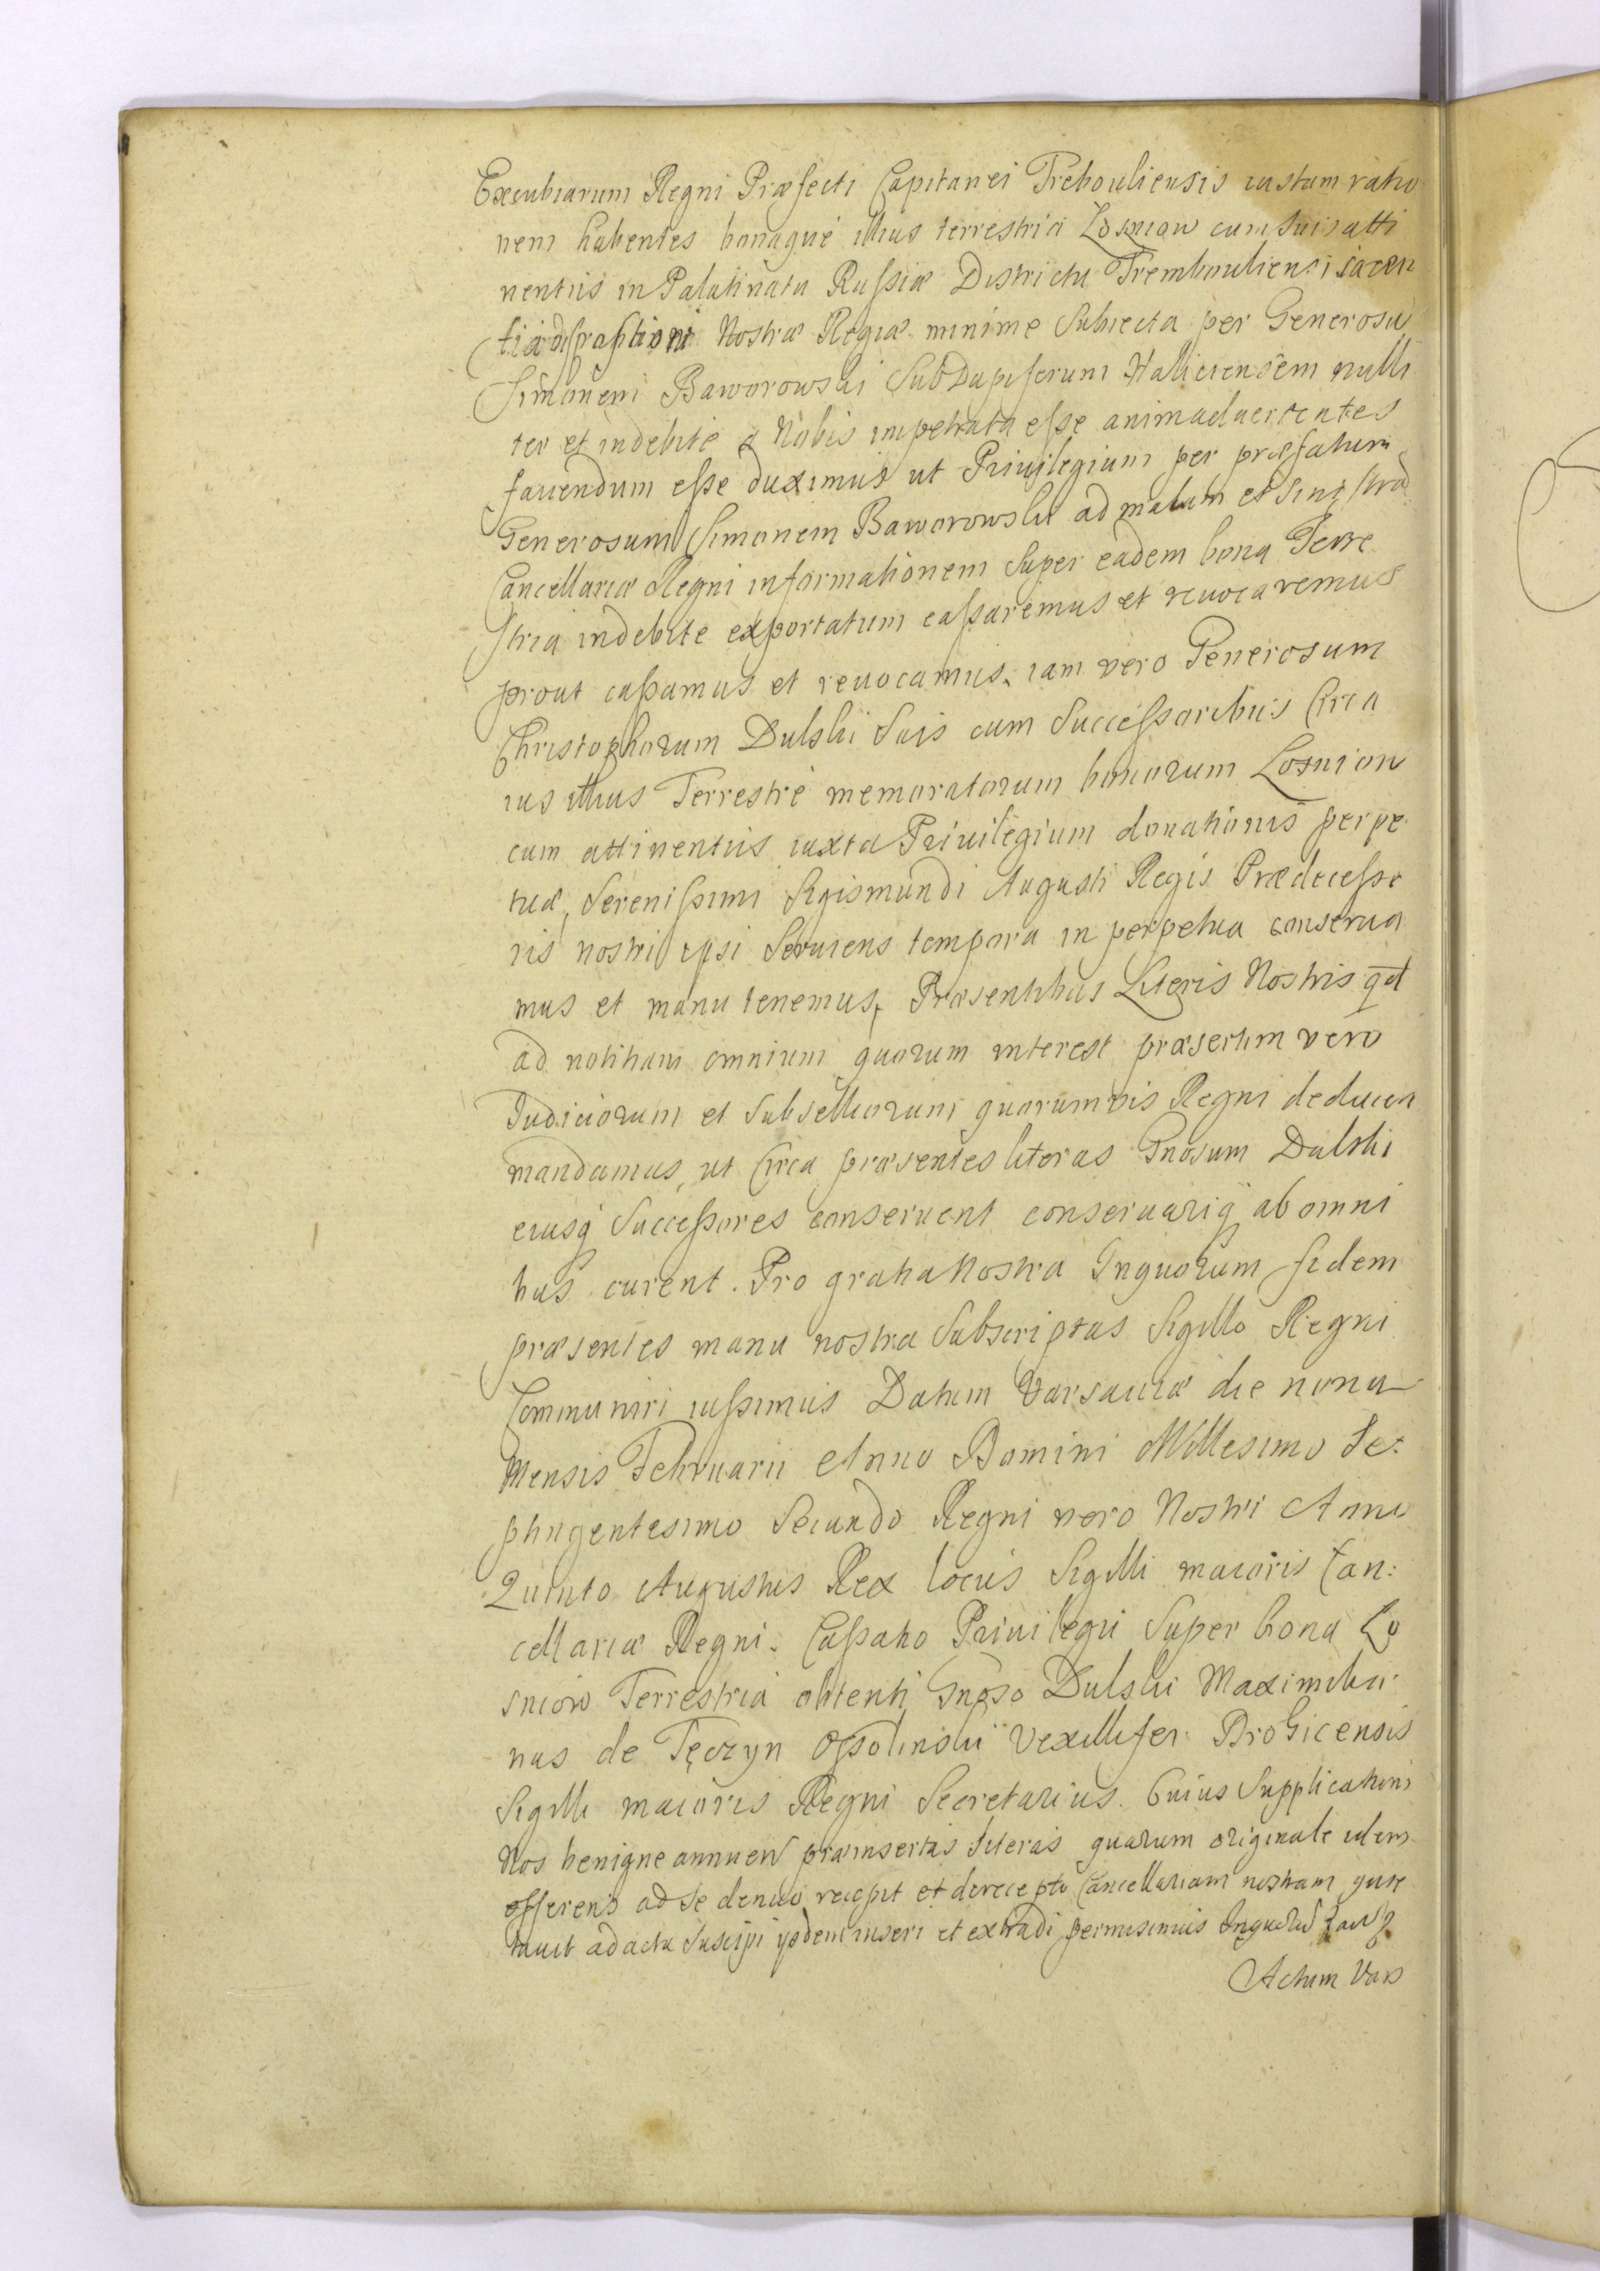 Excubiarum Regni Præfecti Capitanei Trebouliensis iustam ratio
nem habentes bonaque illius terrestria Losniow cum suis atti
nentiis in Palatinatu Russiæ Districtu Trembouliensi iacen
tia dispositioni Nostræ Regiæ minime subiecta per Generosu
Simonem Baworowski SubDapiferum Haliciensem nulli
ter et indebite a Nobis impetrata esse animaduertentes
fauendum esse duximus ut Priuilegium per præfatum
Generosum Simonem Baworowski ad malam et sinistrā
Cancellariæ Regni informationem super eadem bona Terre
stria indebite exportatum cassaremus et reuocaremus
prout cassamus et reuocamus, iam vero Generosum
Christophorum Dulski suis cum Successoribus Circa
ius illius Terrestre memoratorum bonorum Losniow
cum attinentiis iuxta Priuilegium donationis perpe
tuæ, Serenissimi Sigismundi Augusti Regis Prædecesso
ris nostri ipsi seruiens tempora in perpetua conserua
mus et manu tenemus, Præsentibus Literis Nostris qd
ad notitiam omnium quorum interest præsertim vero
Iudiciorum et Subselliorum quorumvis Regni deducen
mandamus, ut Circa præsentes literas Gnosum Dulski
eiusq Successores conseruent conseruariq ab omni
bus curent. Pro gratia Nostra Inquorum fidem
præsentes manu nostra subscriptas Sigillo Regni
Communiri iussimus Datum Varsauiæ die nona
Mensis Februarii Anno Domini Millesimo Se:
ptingentesimo Secundo Regni vero Nostri Anno
Quinto Augustus Rex locus Sigilli maioris Can:
cellariæ Regni. Cassatio Priuilegii super bona Lo
sniow Terrestria obtenti Gnoso Dulski Maximilia
nus de Tęczyn Ossolinski Vexillifer Drohicensis
Sigilli maioris Regni Secretarius. Cuius Supplicationi
Nos benigne annuen præinsertas literas quarum originale idem
offerens ad se denuo recepit et de recepto Cancellariam nostram quie
tauit ad acta suscipi ijsdem inseri et extradi permisimus Inquorū
Actum Vars